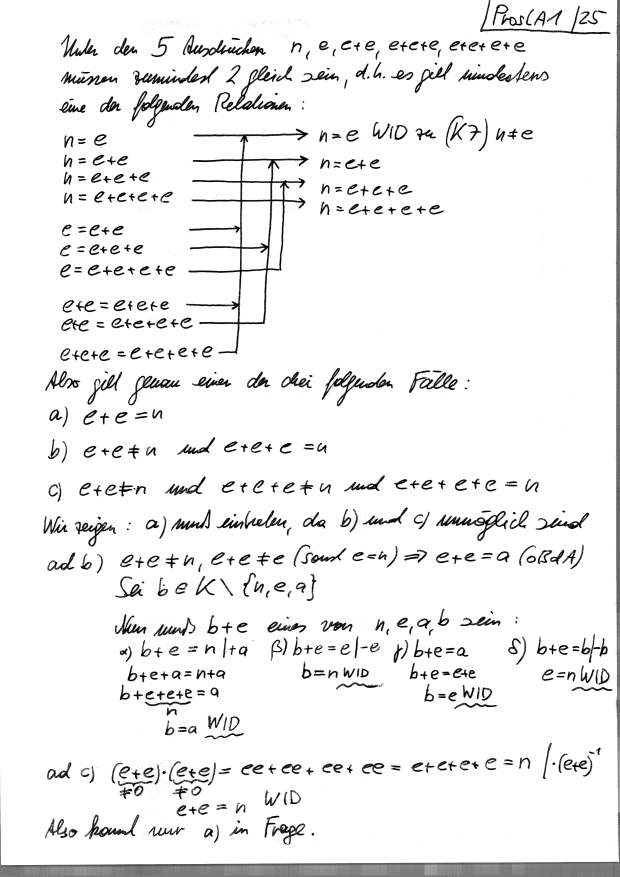 ProsLA1 /25
Unter den 5 Ausdrücken n, e, e+e, e+e+e, e+e+e+e
müssen zumindest 2 gleich sein, d.h. es gilt mindestens
eine der folgenden Relationen:
n = e → n = e WID zu (K7) n ≠ e
n = e+e → n = e+e
n = e+e+e → n = e+e+e
n = e+e+e+e → n = e+e+e+e
e = e+e
e = e+e+e
e = e+e+e+e
e+e = e+e+e
e+e = e+e+e+e
e+e+e = e+e+e+e
Also gilt genau einer der drei folgenden Fälle:
a) e+e = n
b) e+e ≠ n und e+e+e = n
c) e+e ≠ n und e+e+e ≠ n und e+e+e+e = n
Wir zeigen: a) muß eintreten, da b) und c) unmöglich sind
ad b) e+e ≠ n, e+e ≠ e (sonst e=n) ⇒ e+e = a (oBdA)
Sei b ∈ K \ {n, e, a}
Nun muß b+e eines von n, e, a, b sein:
α) b+e = n |+a β) b+e = e |-e γ) b+e = a δ) b+e = b |-b
b+e+a = n+a b = n WID b+e = e+e e = n WID
b+e+e+e = a b = e WID
n
b = a WID
ad c) (e+e)·(e+e) = ee+ee+ee+ee = e+e+e+e = n |·(e+e)⁻¹
≠0 ≠0
e+e = n WID
Also kommt nur a) in Frage.